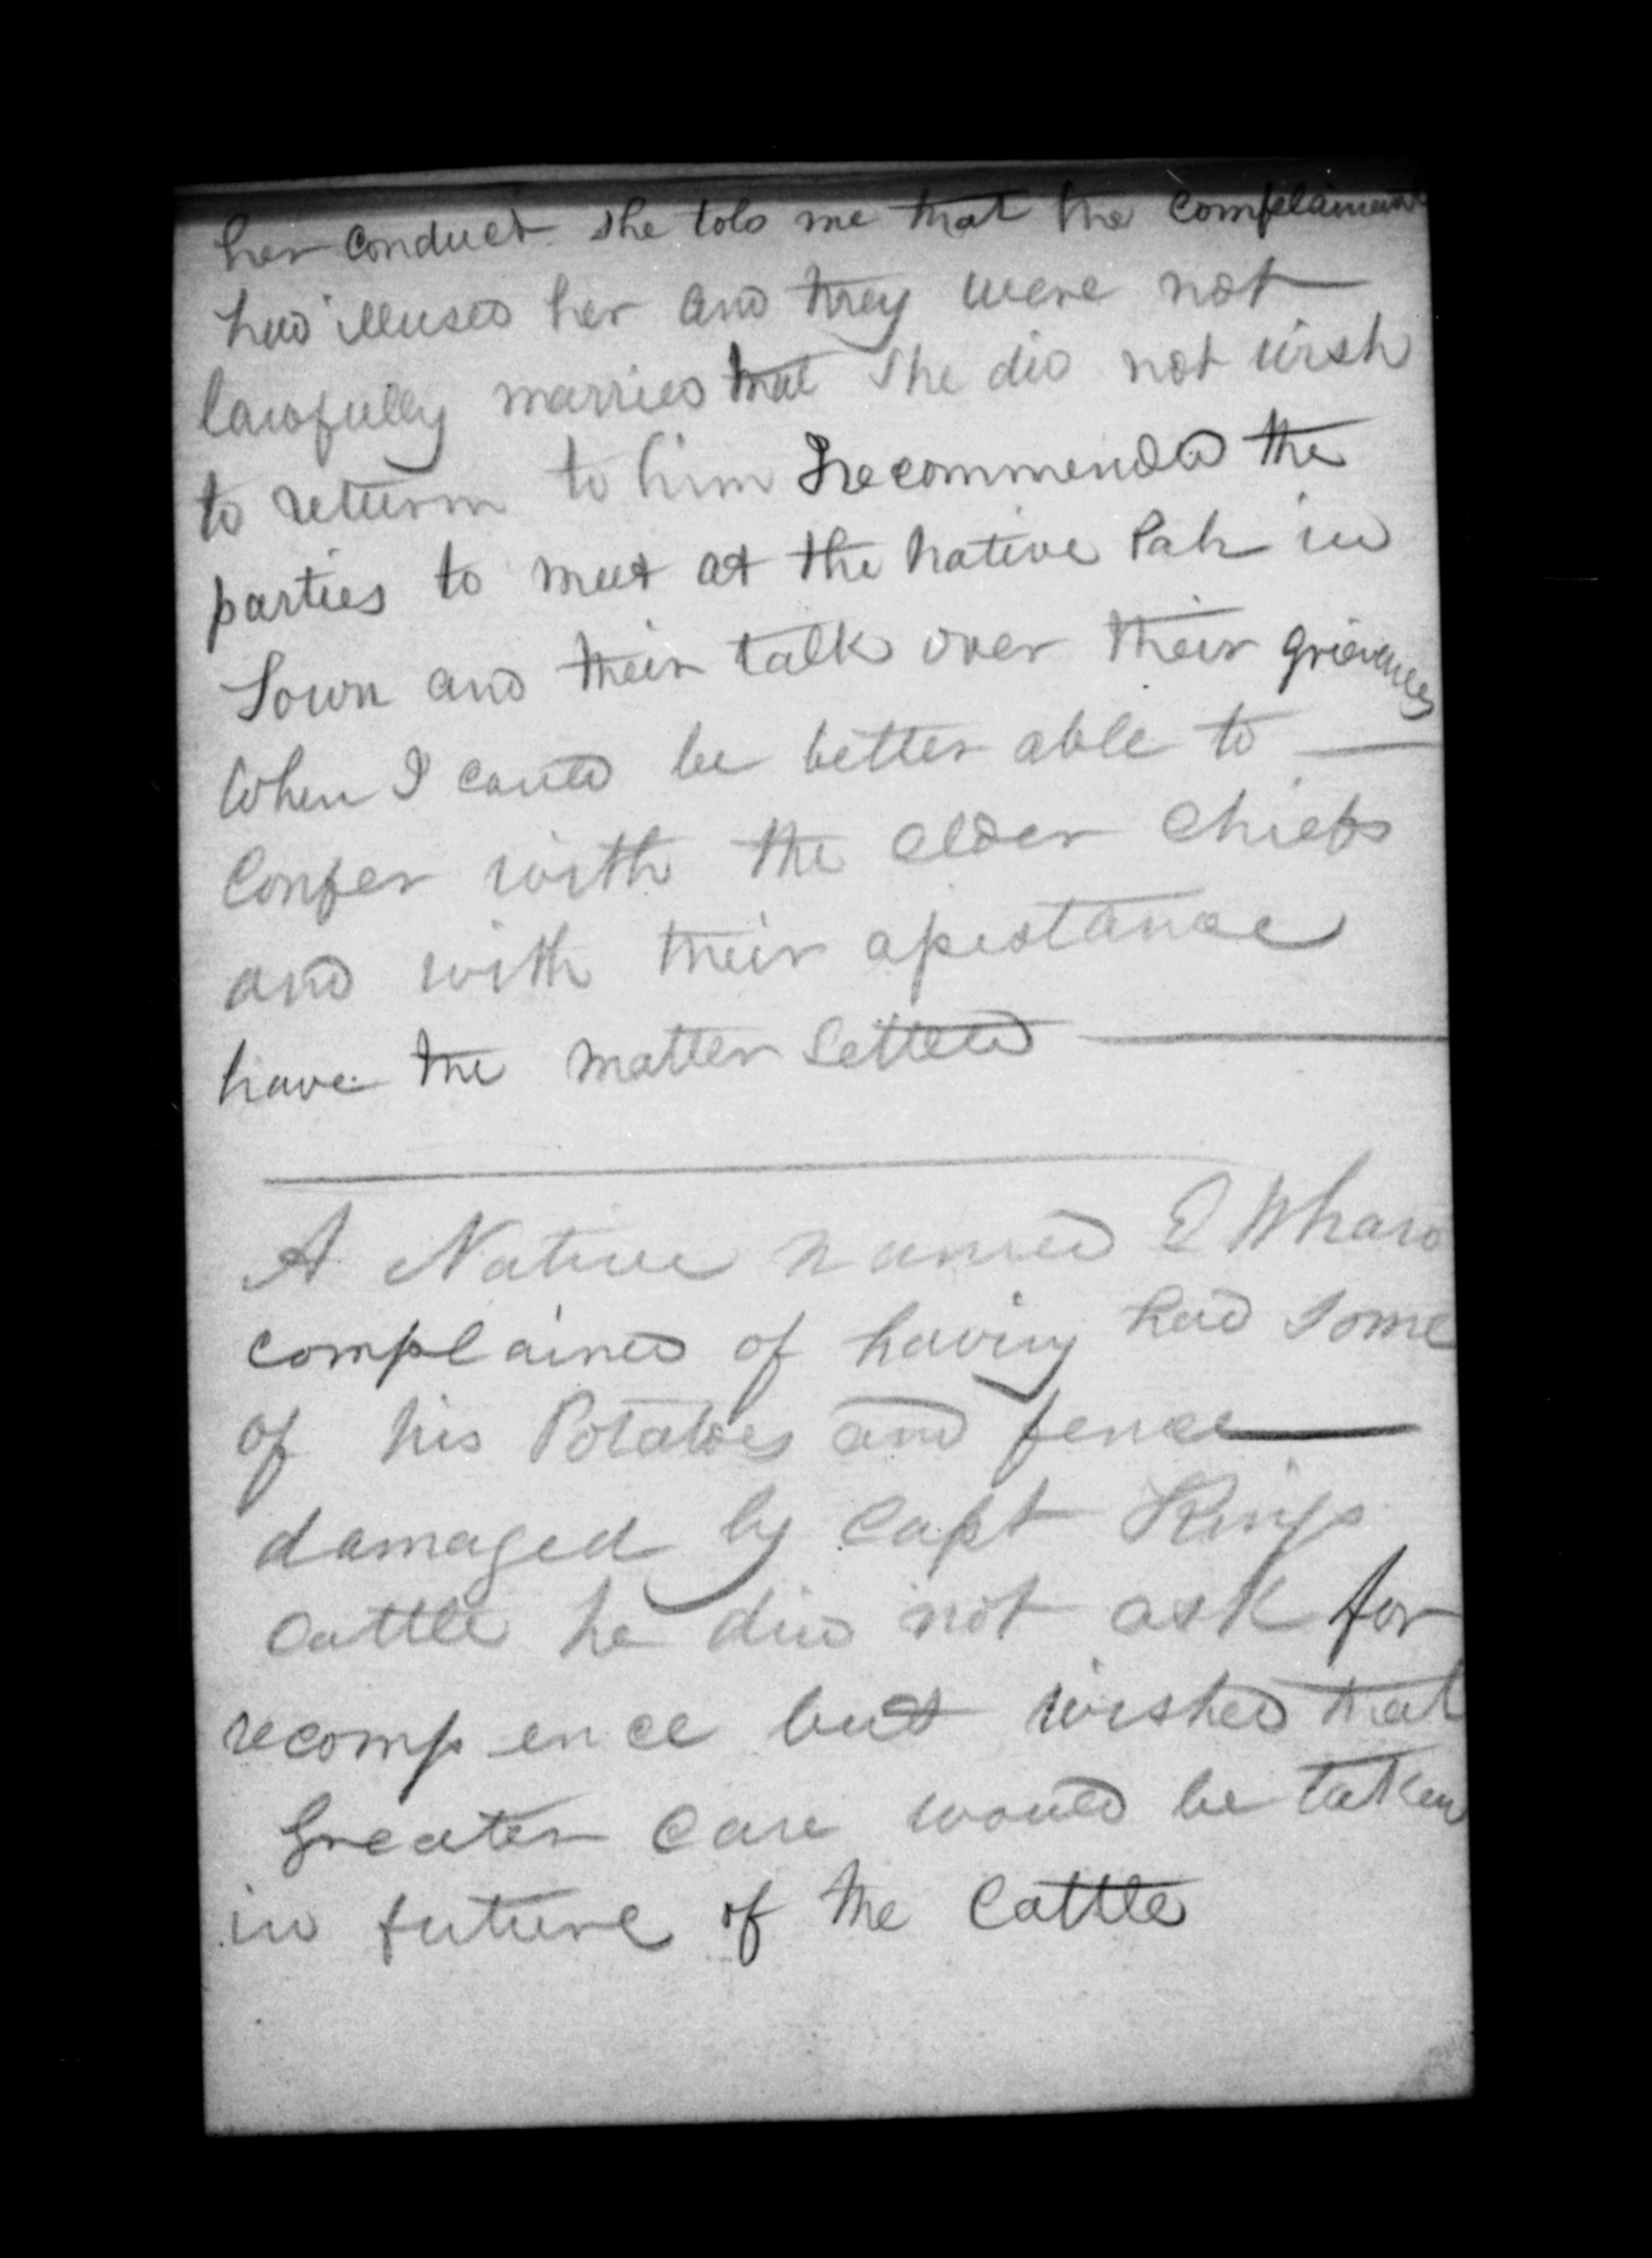 her conduct she told me that the complainant
had illused her and they were not
lawfully married that she did not wish
to return to him I recommended the
parties to meet at the native Pah in
Town and their talk over their grievances
When I could be better able to
Confer with the elder chiefs
and with their assistance
have the matter settled
A Native named E Wharo
complained of having had some
of his Potatoes and fence
damaged by Capt Kings
cattle he did not ask for
recompence but wished that
Greater care would be taken
in future of the Cattle